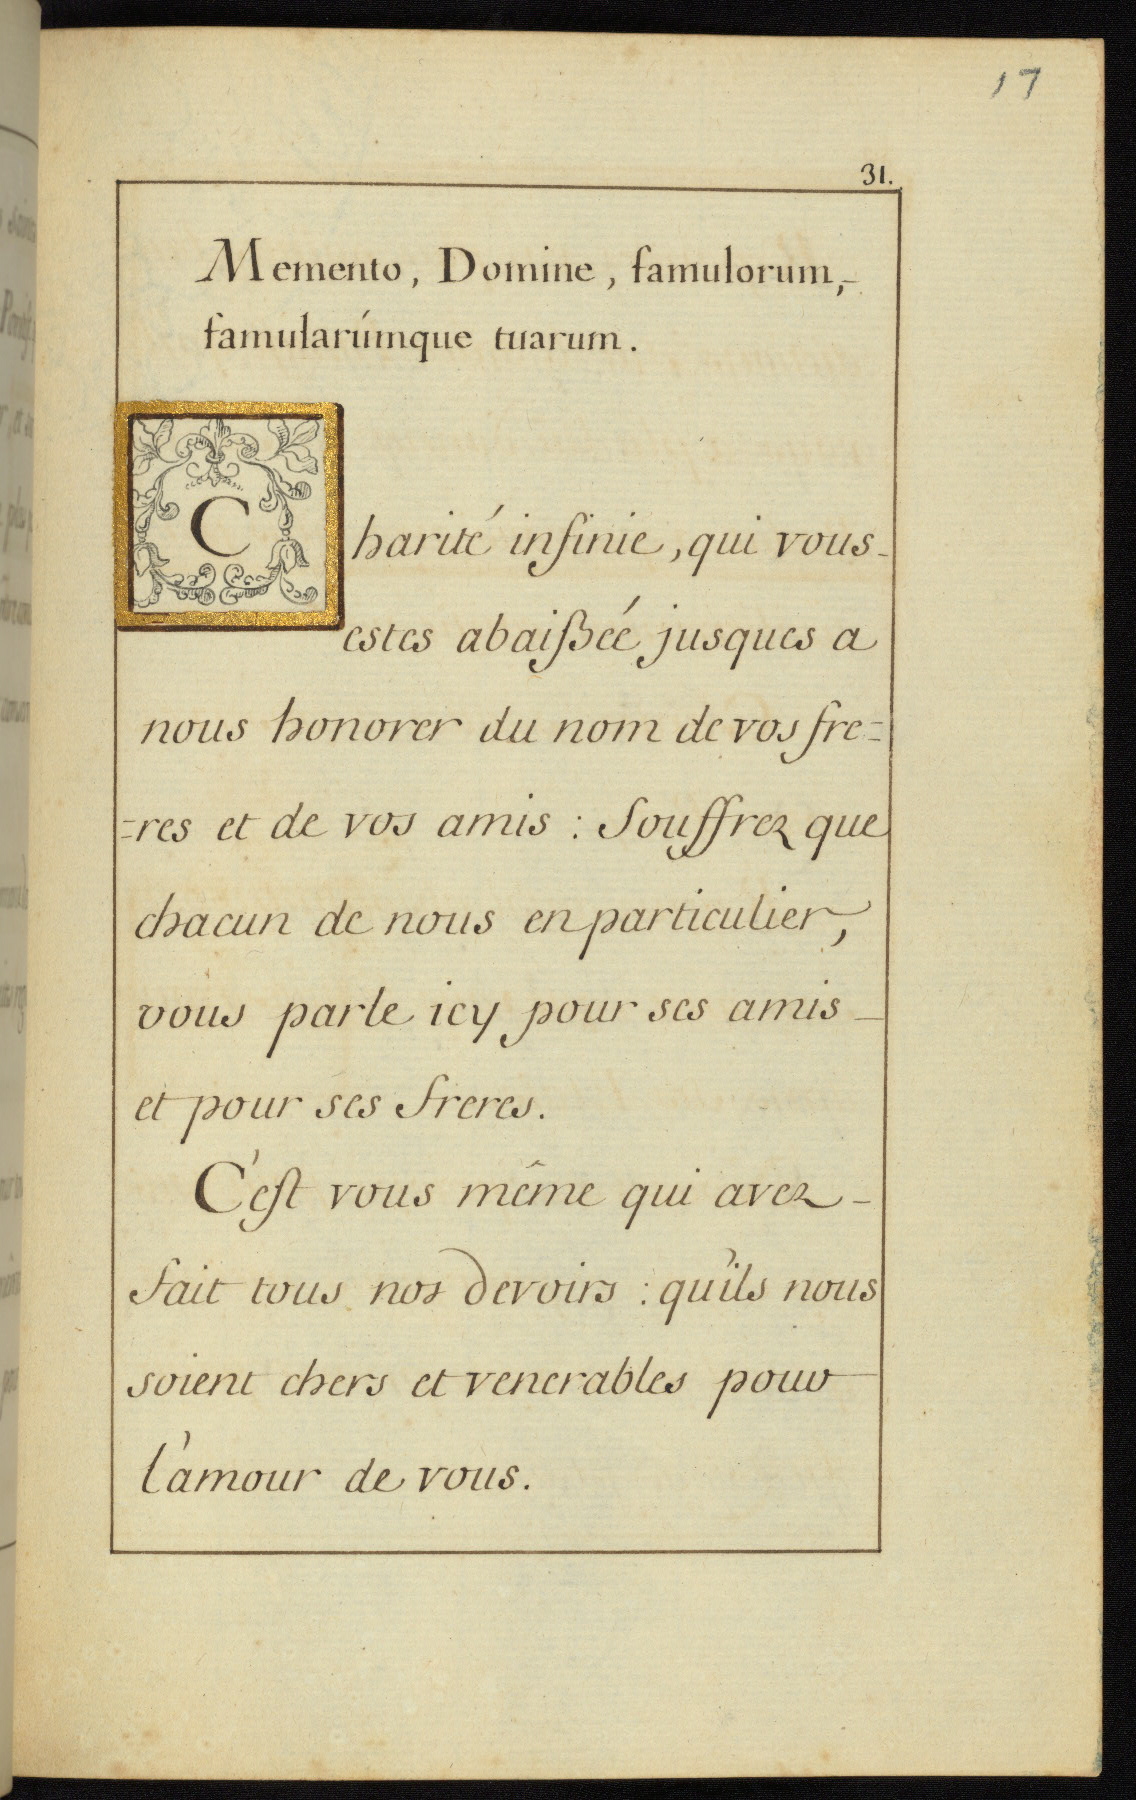 17
31.
Memento, Domine, famulorum,
famularúmque tuarum.
Charité infinie, qui vous
estes abaißéé jusques a
nous honorer du nom de vos fre=
=res et de vos amis : Souffrez que
chacun de nous en particulier,
vous parle icy pour ses amis
et pour ses freres.
C'est vous même qui avez
fait tous nos devoirs : qu'ils nous
soient chers et venerables pour
l'amour de vous.